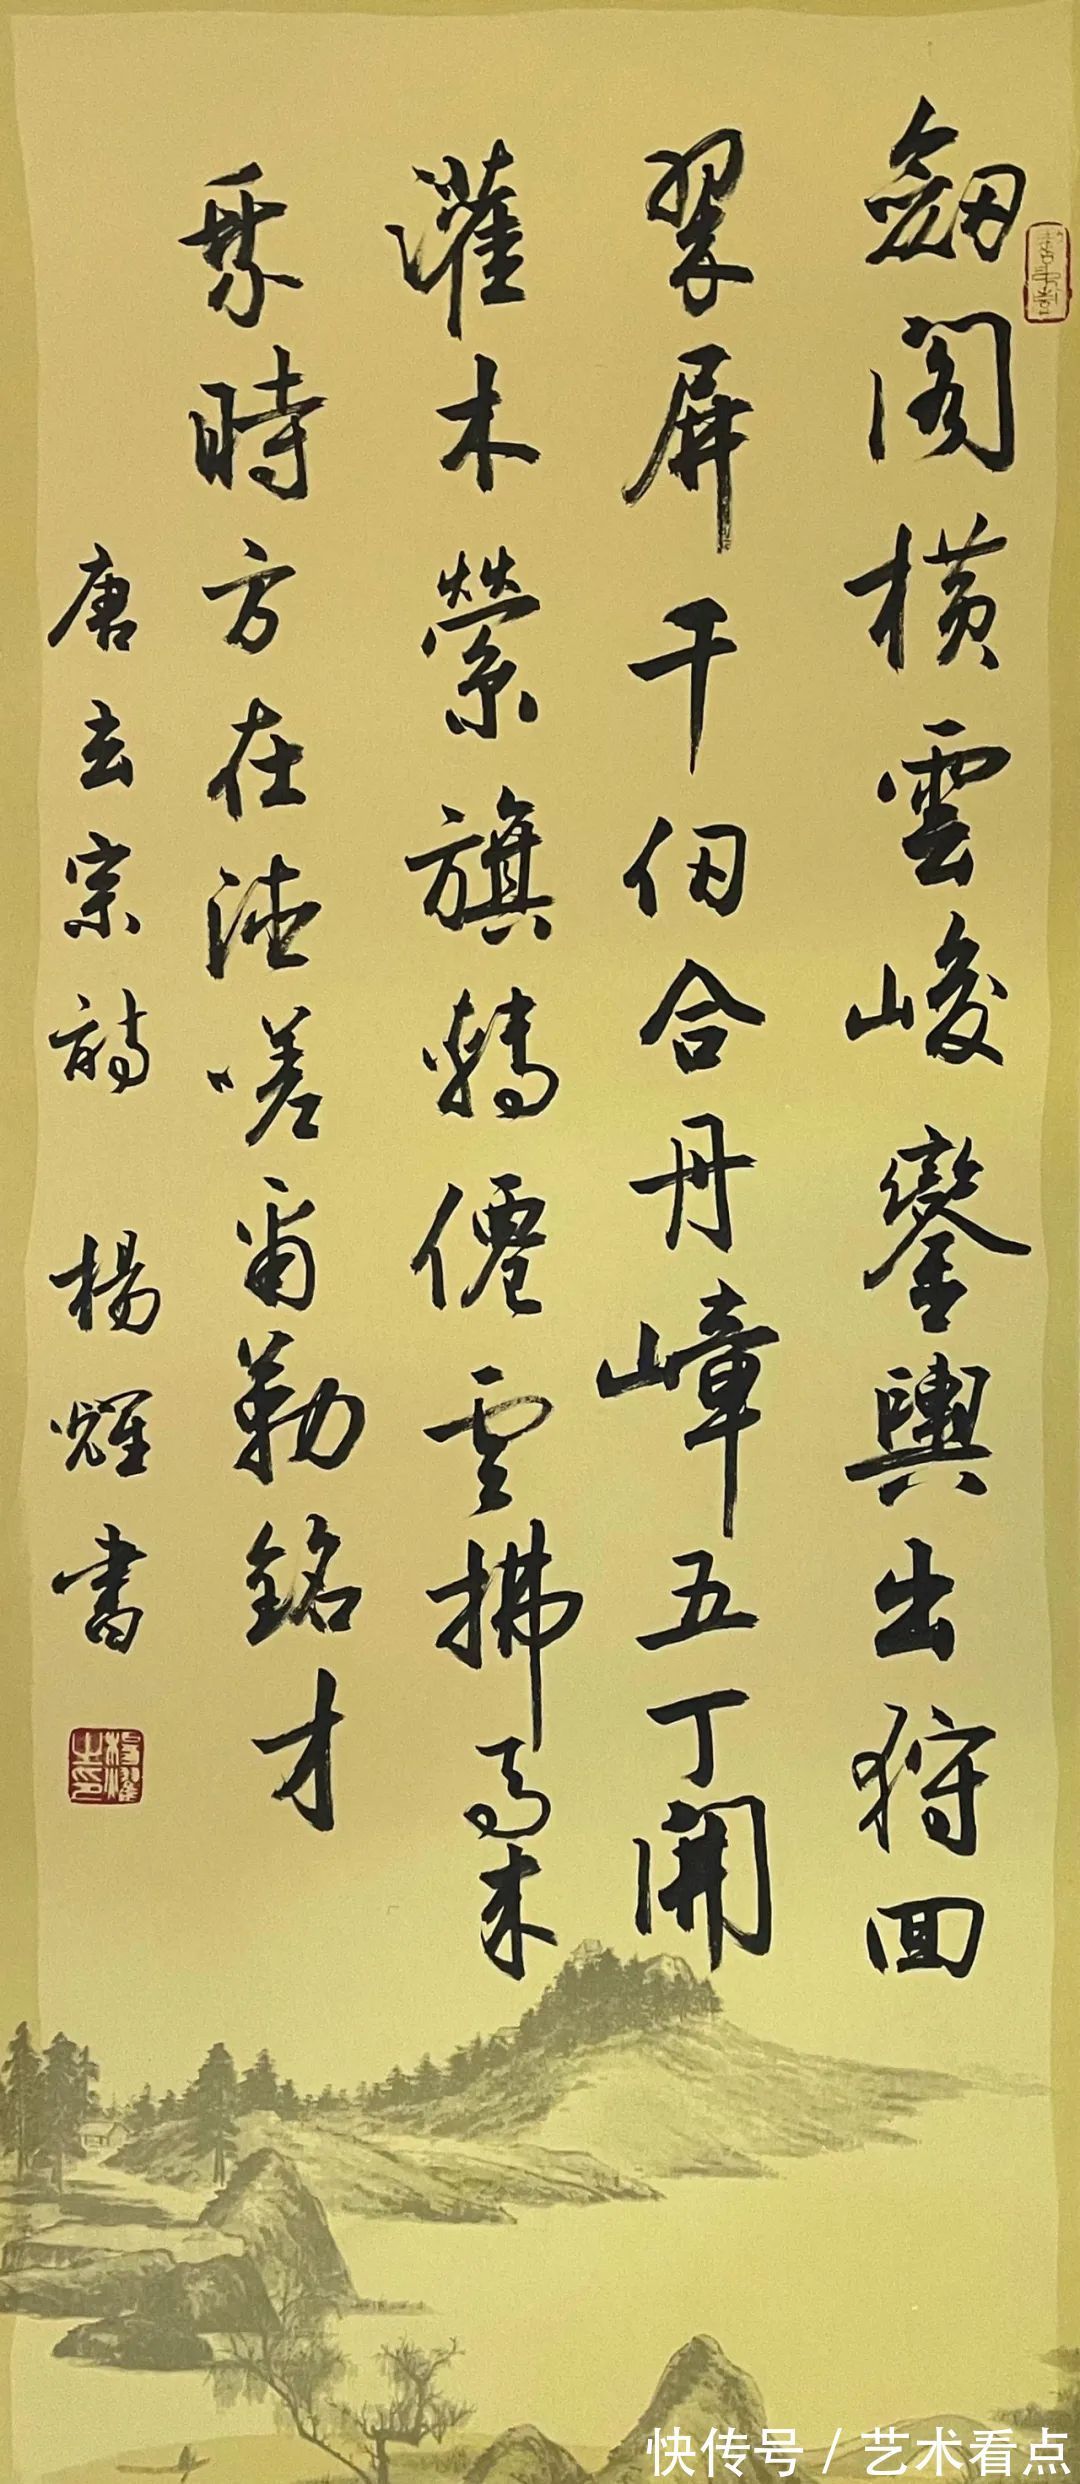 劒閣橫雲峻鑾輿出狩回
翠屏千仞合丹嶂五丁開
灌木縈旗轉僊雲拂馬來
乘時方在德嗟爾勒銘才
唐玄宗詩 楊耀書
楊耀之印
快传号 / 艺术看点